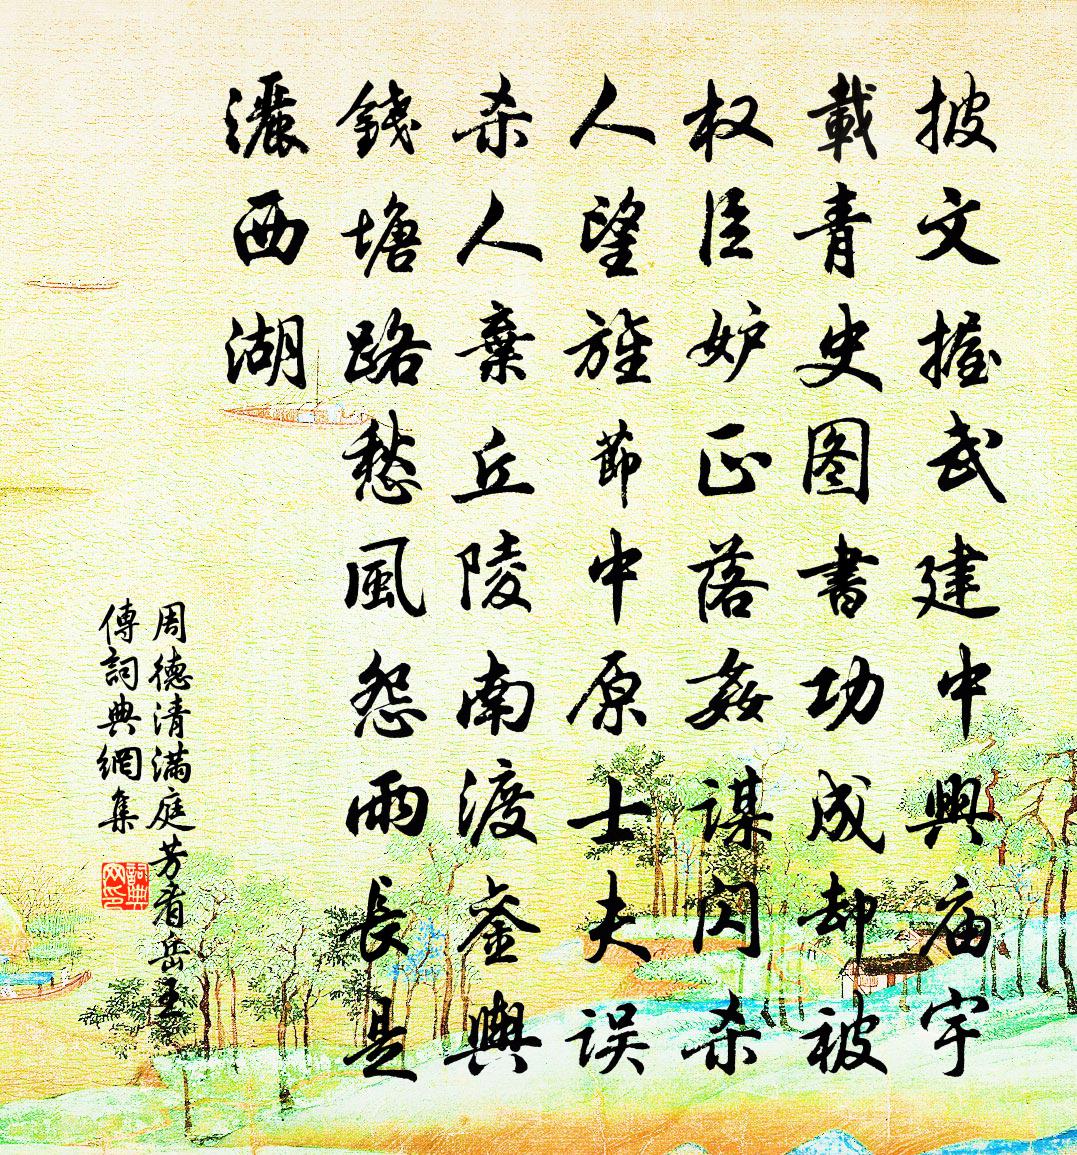 披文握武建中興庙宇
載青史图書功成却被
权臣妒正落姦谋闪杀
人望旌節中原士夫误
杀人棄丘陵南渡銮輿
錢塘路愁風怨雨長是
灑西湖
周德清满庭芳看岳王
傳詞典網集